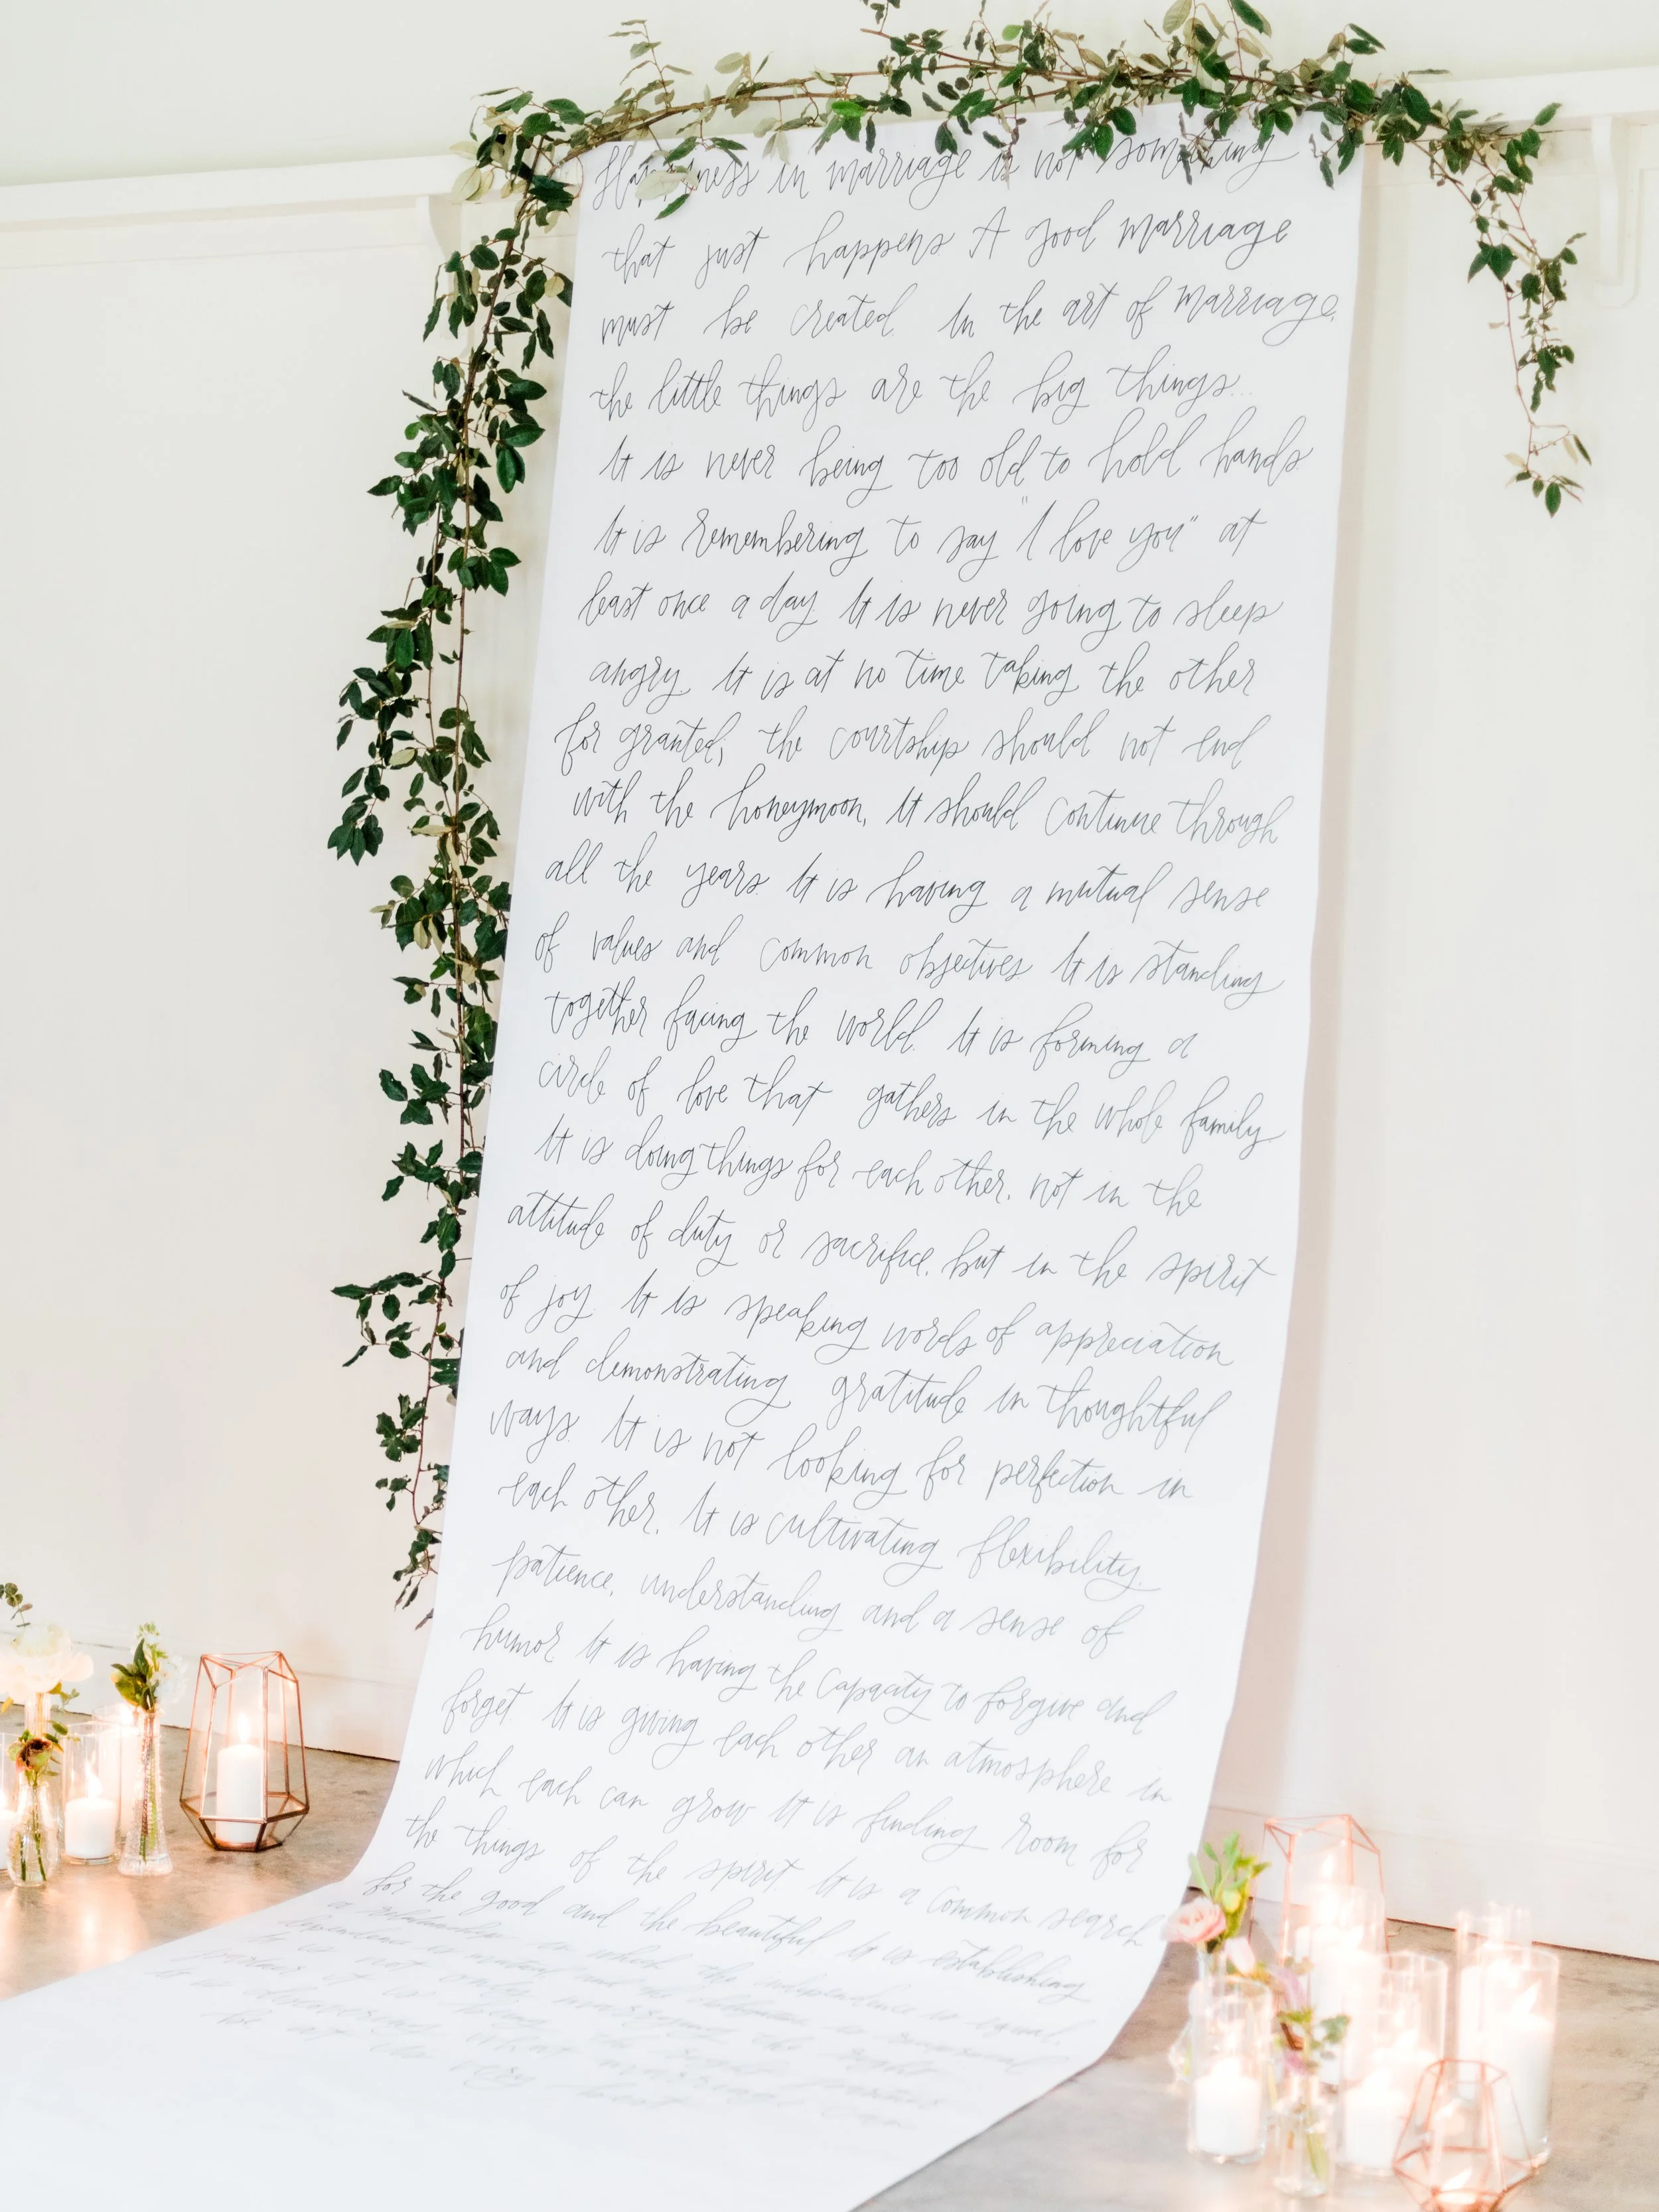 Happiness in marriage is not something
that just happens A good marriage
must be created. In the art of marriage,
the little things are the big things...
It is never being too old to hold hands
It is remembering to say "I love you" at
least once a day. It is never going to sleep
angry. It is at no time taking the other
for granted, the courtship should not end
with the honeymoon, it should continue through
all the years. It is having a mutual sense
of values and common objectives. It is standing
together facing the world. It is forming a
circle of love that gathers in the whole family
It is doing things for each other, not in the
attitude of duty or sacrifice, but in the spirit
of joy. It is speaking words of appreciation
and demonstrating gratitude in thoughtful
ways. It is not looking for perfection in
each other. It is cultivating flexibility,
patience, understanding and a sense of
humor It is having the capacity to forgive and
forget It is giving each other an atmosphere in
which each can grow It is finding room for
the things of the spirit It is a common search
for the good and the beautiful It is establishing
a relationship in which the independence is equal,
dependence is mutual and the
It is not only marrying the right
partner it is being the right partner
be at the very best